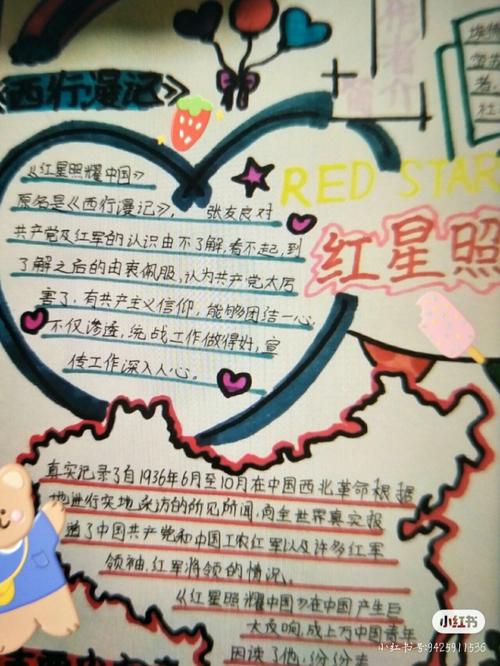 《西行漫记》
作者简介
RED STAR
红星照
《红星照耀中国》
原名是《西行漫记》, 张友良对
共产党及红军的认识由不了解,看不起,到
了解之后的由衷佩服,认为共产党太厉
害了,有共产主义信仰,能够团结一心
不仅渗透,统战工作做得好,宣
传工作深入人心。
真实记录了自1936年6月至10月在中国西北革命根据
地进行实地采访的所见所闻,向全世界真实报
道了中国共产党和中国工农红军以及许多红军
领袖,红军将领的情况。
《红星照耀中国》在中国产生巨
大反响,成上万中国青年
因读了他,纷纷走
者
社
小红书
小红书号:9425911536